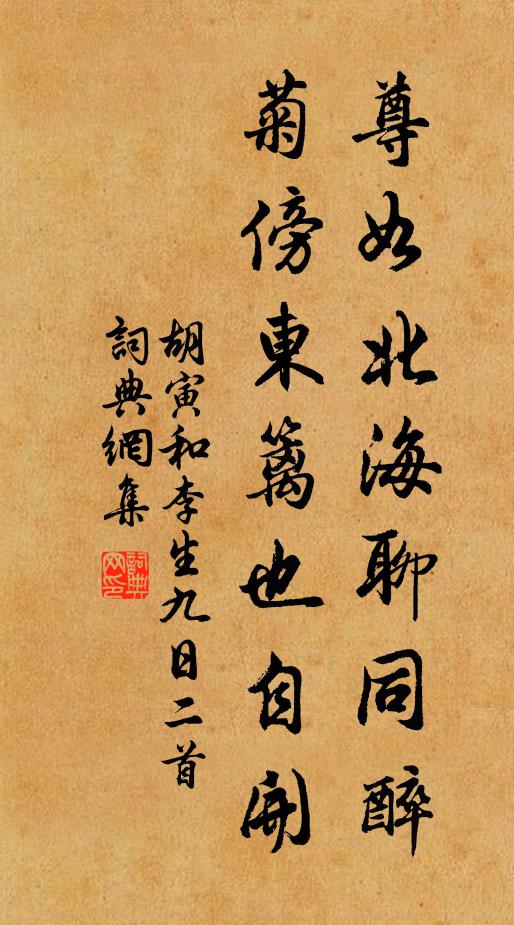 尊如北海聊同醉
菊傍東籬也自開
胡寅和李生九日二首
詞典網集
詞典网印